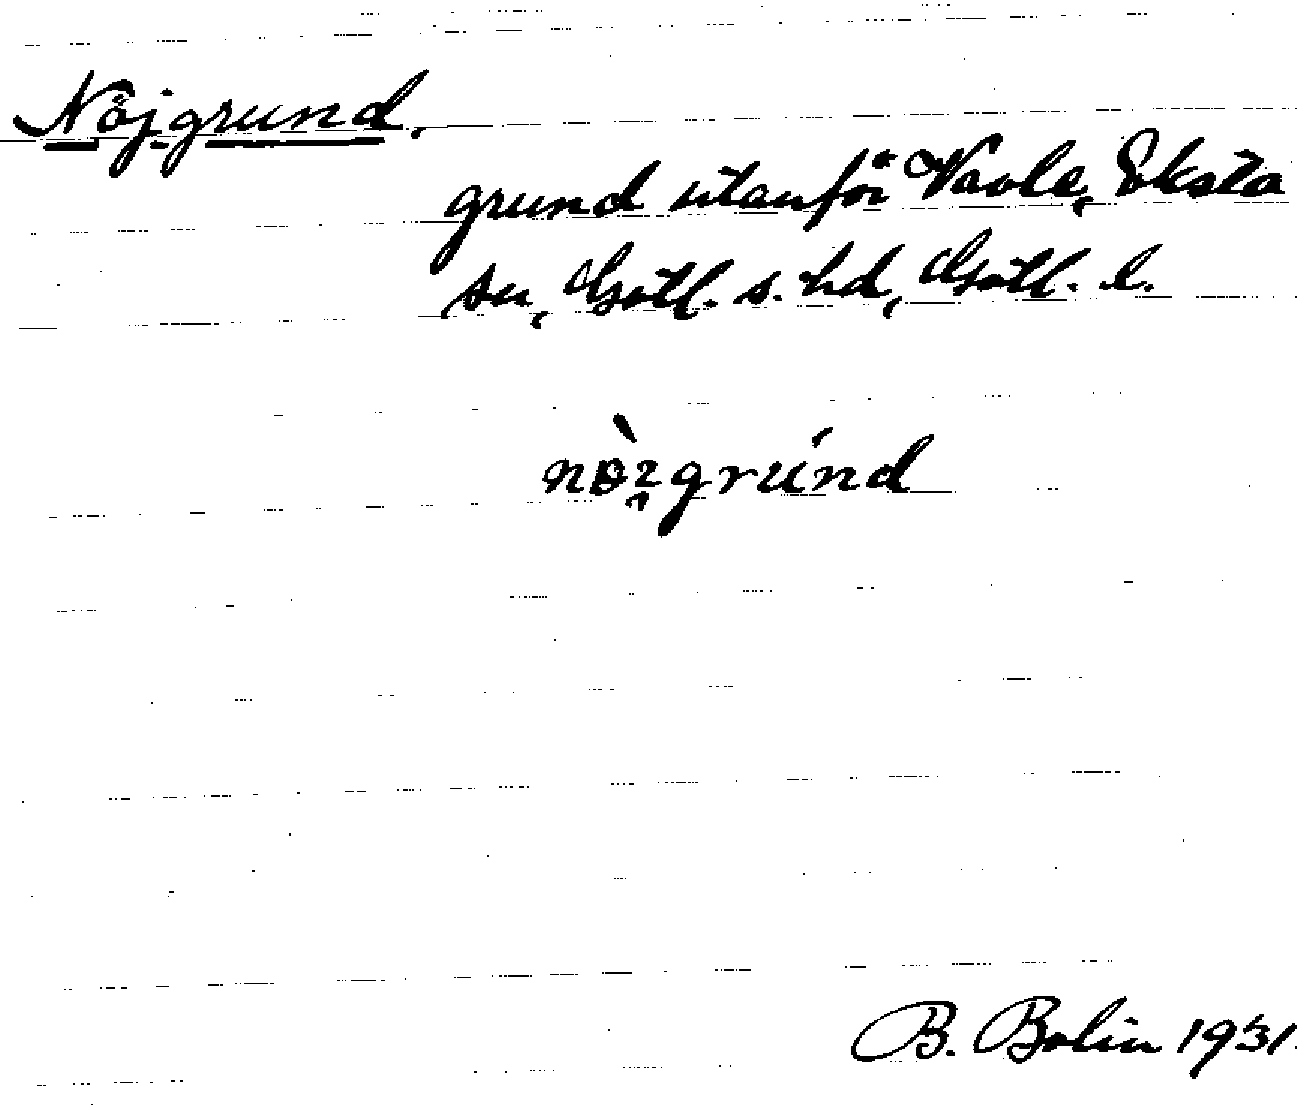 Nöjgrund.
grund utanför Vavle, Eksta
sn, Gotl. s. hd, Gotl. l.
B. Bolin 1931.